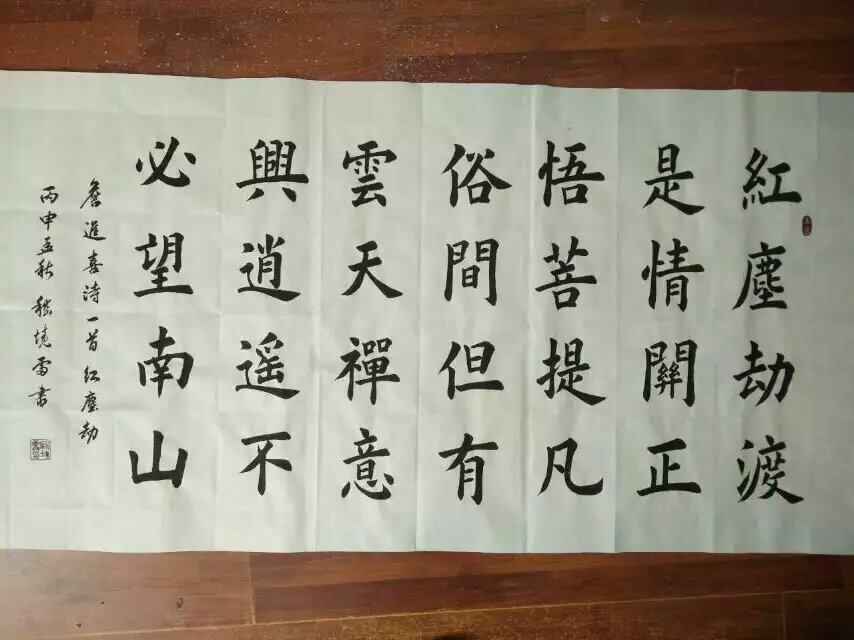 紅塵劫渡
是情關正
悟菩提凡
俗間但有
雲天禪意
興逍遥不
必望南山
詹進喜詩一首 红塵劫
丙申孟秋 嵇境雷書